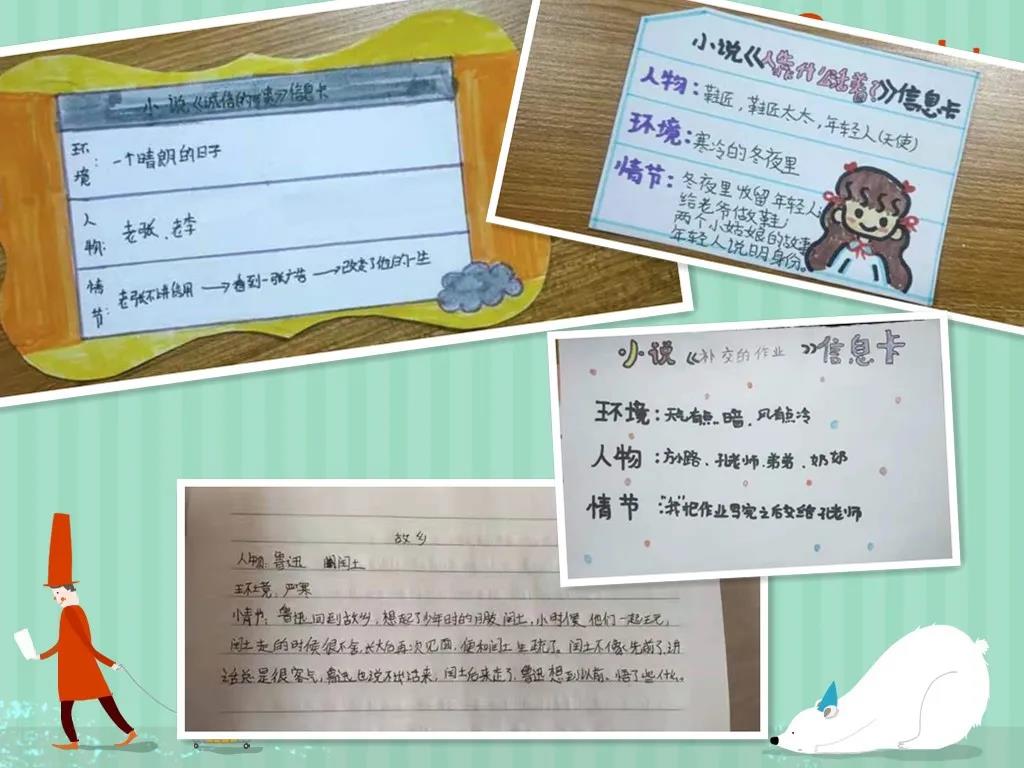 小说《诚信的故事》信息卡
环境: 一个晴朗的日子
人物: 老张、老李
情节: 老张不讲信用→看到一张广告→改变了他的一生
小说《人靠什么活着》信息卡
人物:鞋匠,鞋匠太太,年轻人(天使)
环境:寒冷的冬夜里
情节:冬夜里收留年轻人
给老爷做鞋
两个小姑娘的故事
年轻人说明身份。
小说《补交的作业》信息卡
环境:天有点暗、风有点冷
人物:方小路、孔老师、弟弟、奶奶
情节:“我”把作业写完之后交给孔老师
故乡
人物:鲁迅 闰土
环境:严寒
情节:鲁迅回到故乡,想起了少年时的朋友闰土,小时候他们一起玩,
闰土走的时候很不舍,长大后再次见面,便和闰土生疏了。闰土不像先前了,讲
话总是很客气,鲁迅也说不出话来,闰土后来走了,鲁迅想到以前、悟了些什么。